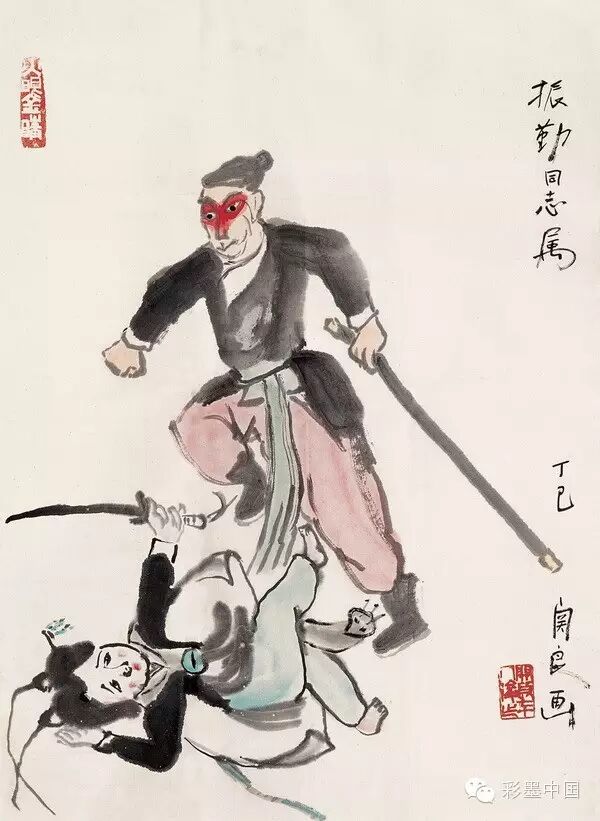 振勤同志属
丁巳
關良画
彩墨中国